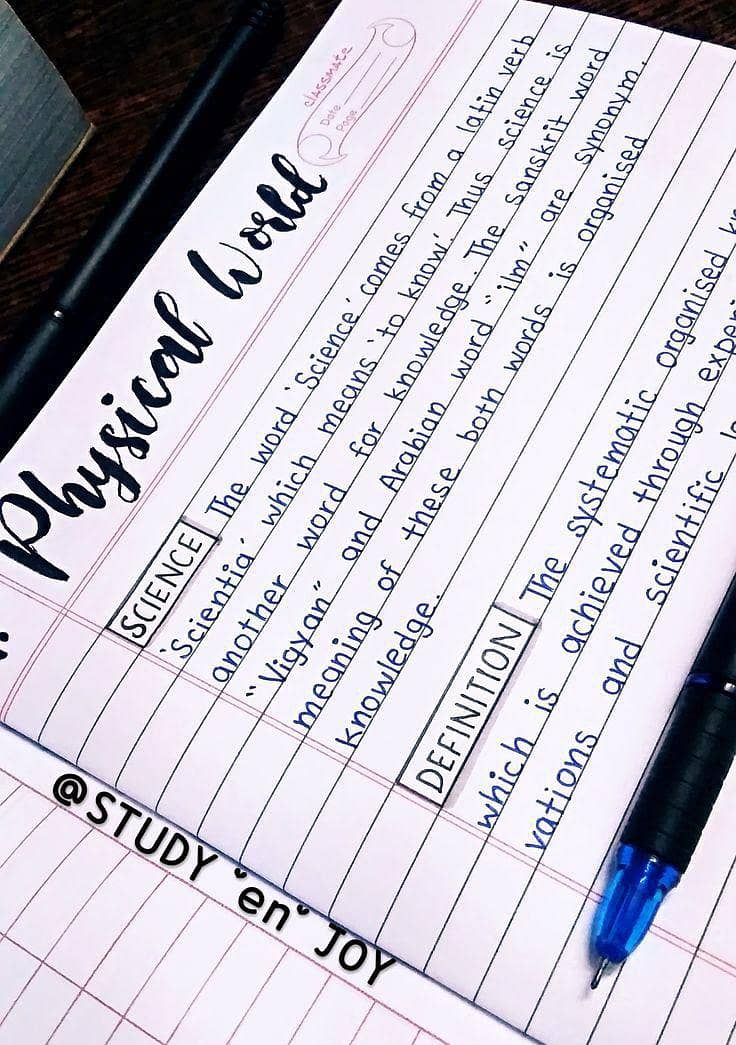 classmate
Date
Page
Physical World
SCIENCE The word 'Science' comes from a latin verb
'Scientia' which means 'to know'. Thus science is
another word for knowledge. The sanskrit word
"Vigyan" and Arabian word "ilm" are synonym.
meaning of these both words is organised
knowledge.
DEFINITION The systematic organised
which is achieved through
vations and scientific
@STUDY en JOY